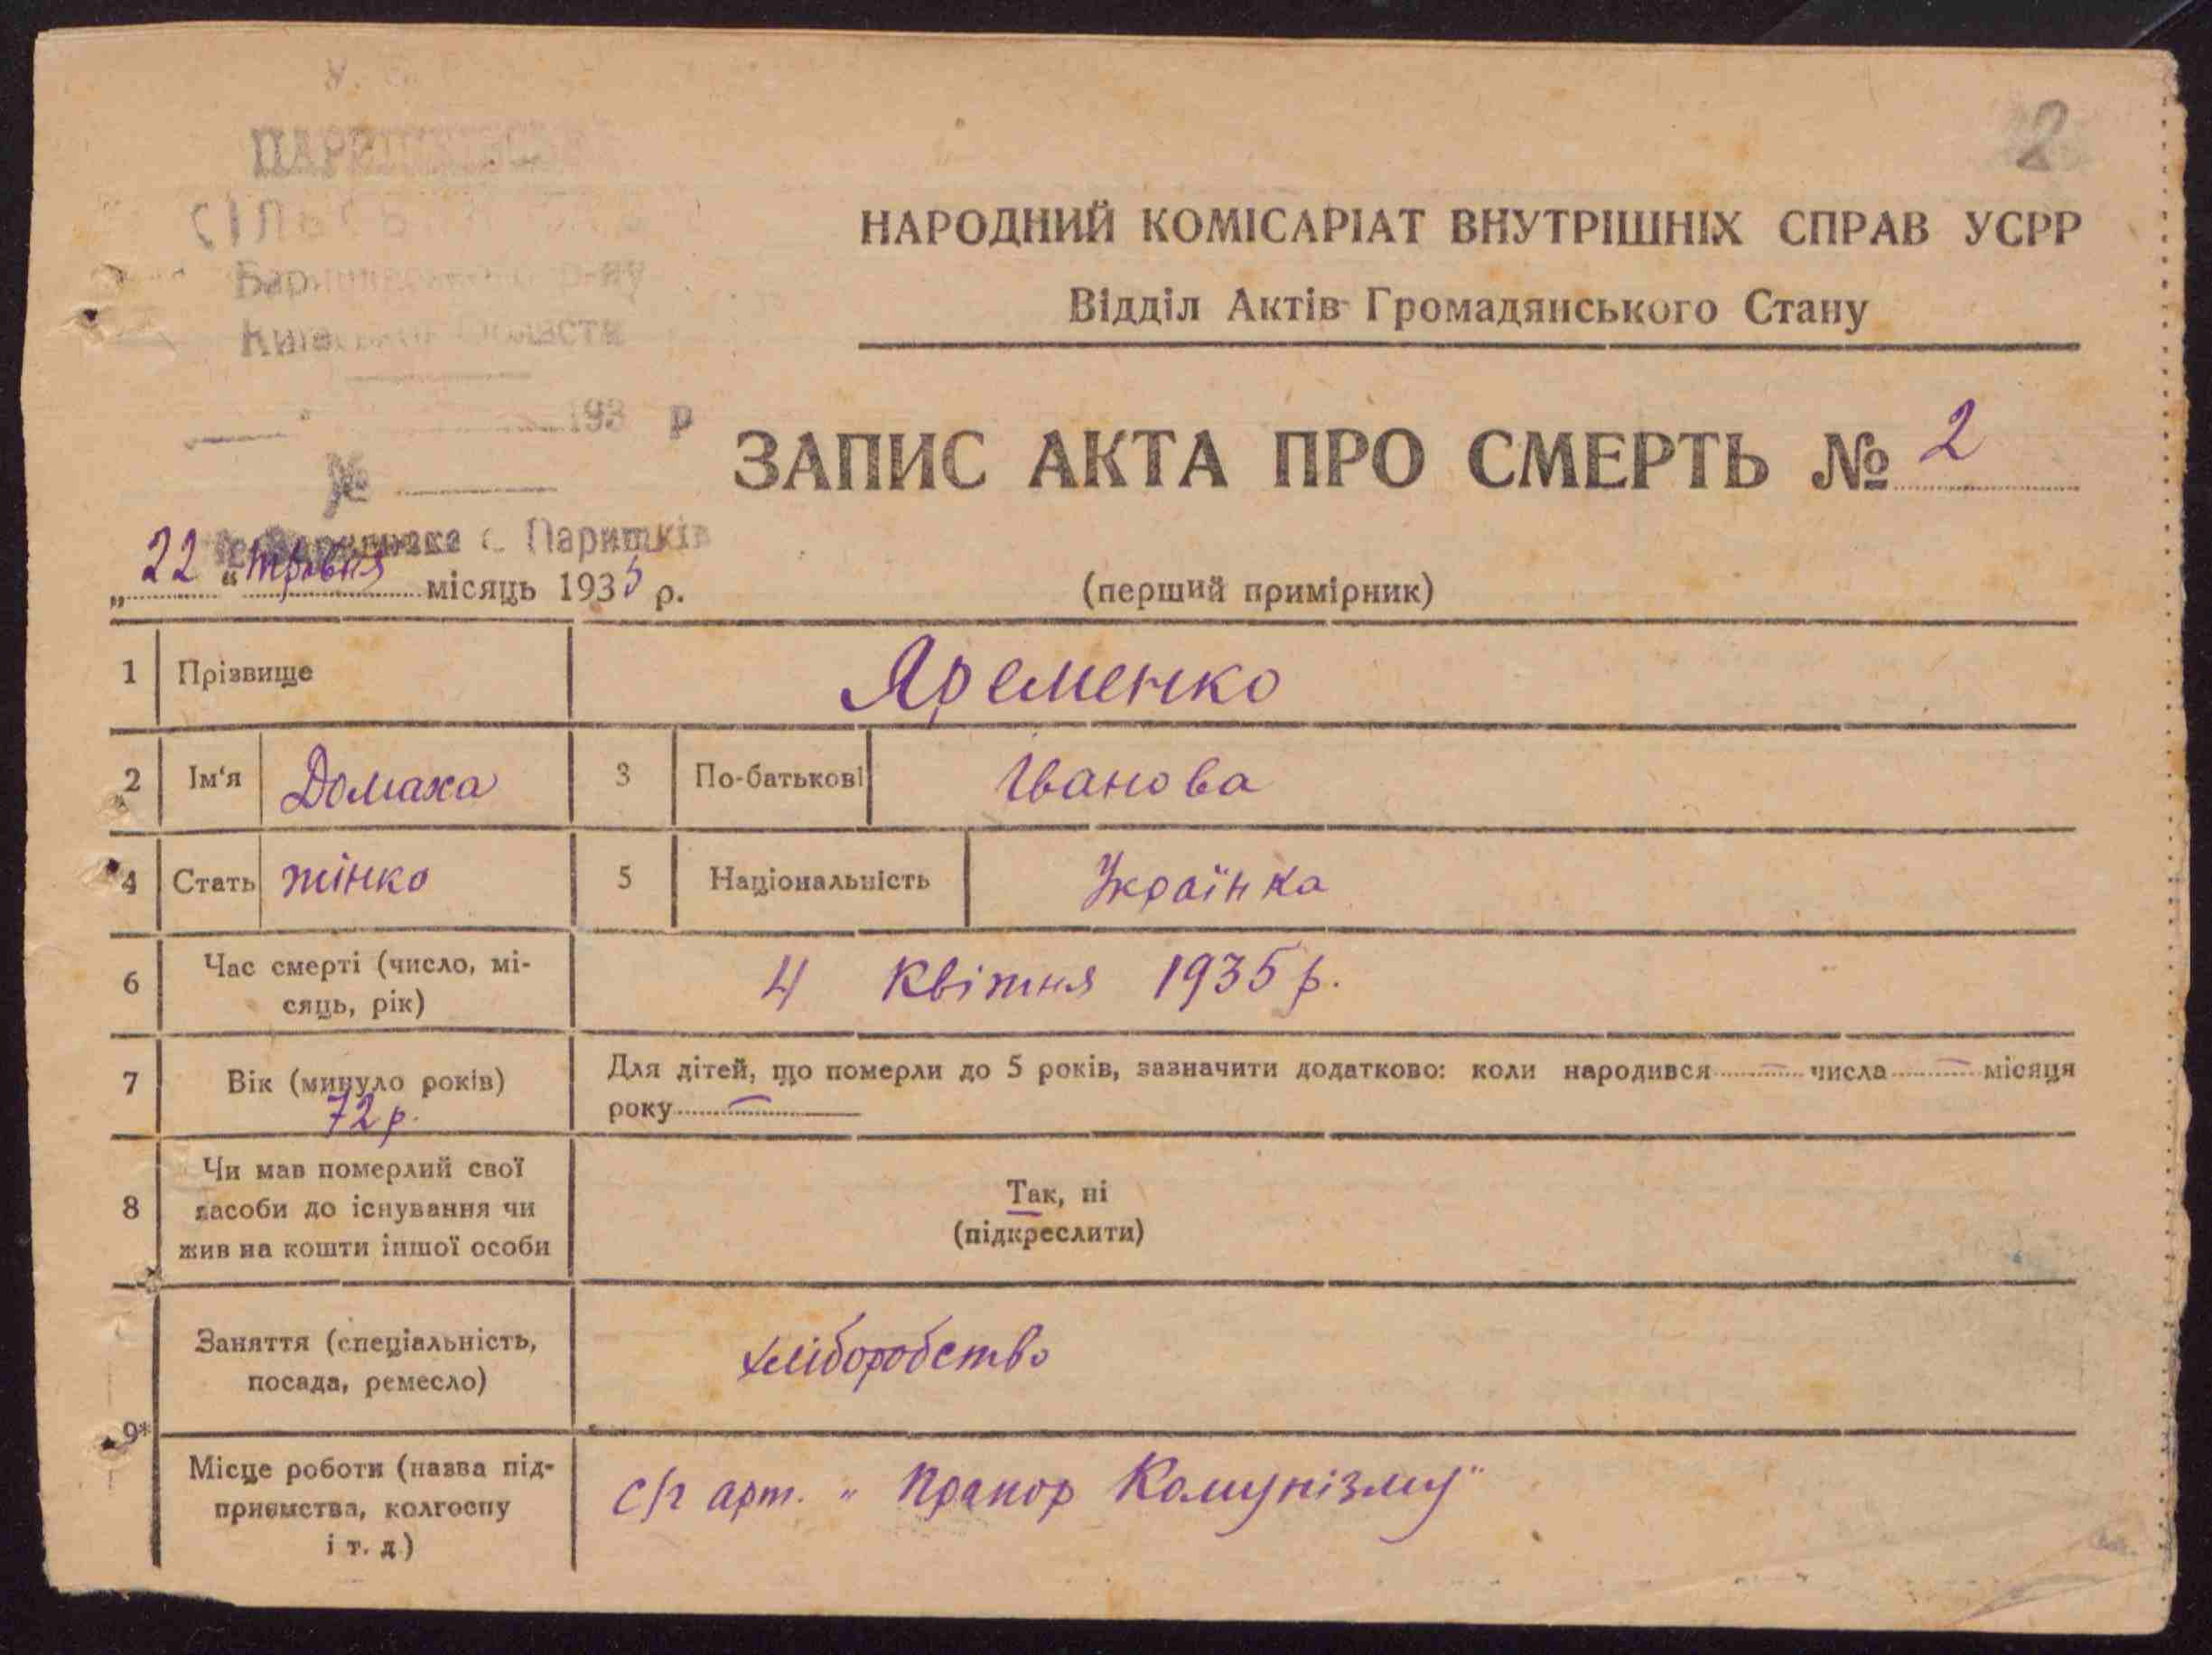 2
НАРОДНИЙ КОМІСАРІАТ ВНУТРІШНІХ СПРАВ УСРР
Відділ Актів Громадянського Стану
193 р
№
ЗАПИС АКТА ПРО СМЕРТЬ № 2
с. Паришків
„22“ травня місяць 1935 р.
(перший примірник)
1 Прізвище Яременко
2 Ім'я Домаха 3 По-батькові Іванова
4 Стать жінко 5 Національність Українка
6 Час смерті (число, мі-
сяць, рік)
4 Квітня 1935 р.
7 Вік (минуло років)
72 р.
Для дітей, що померли до 5 років, зазначити додатково: коли народився — числа — місяця
року —
8 Чи мав померлий свої
засоби до існування чи
жив на кошти іншої особи
Так, ні
(підкреслити)
9* Заняття (спеціальність,
посада, ремесло)
хліборобство
Місце роботи (назва під-
приємства, колгоспу
і т. д)
с/г арт. „Прапор Комунізму"